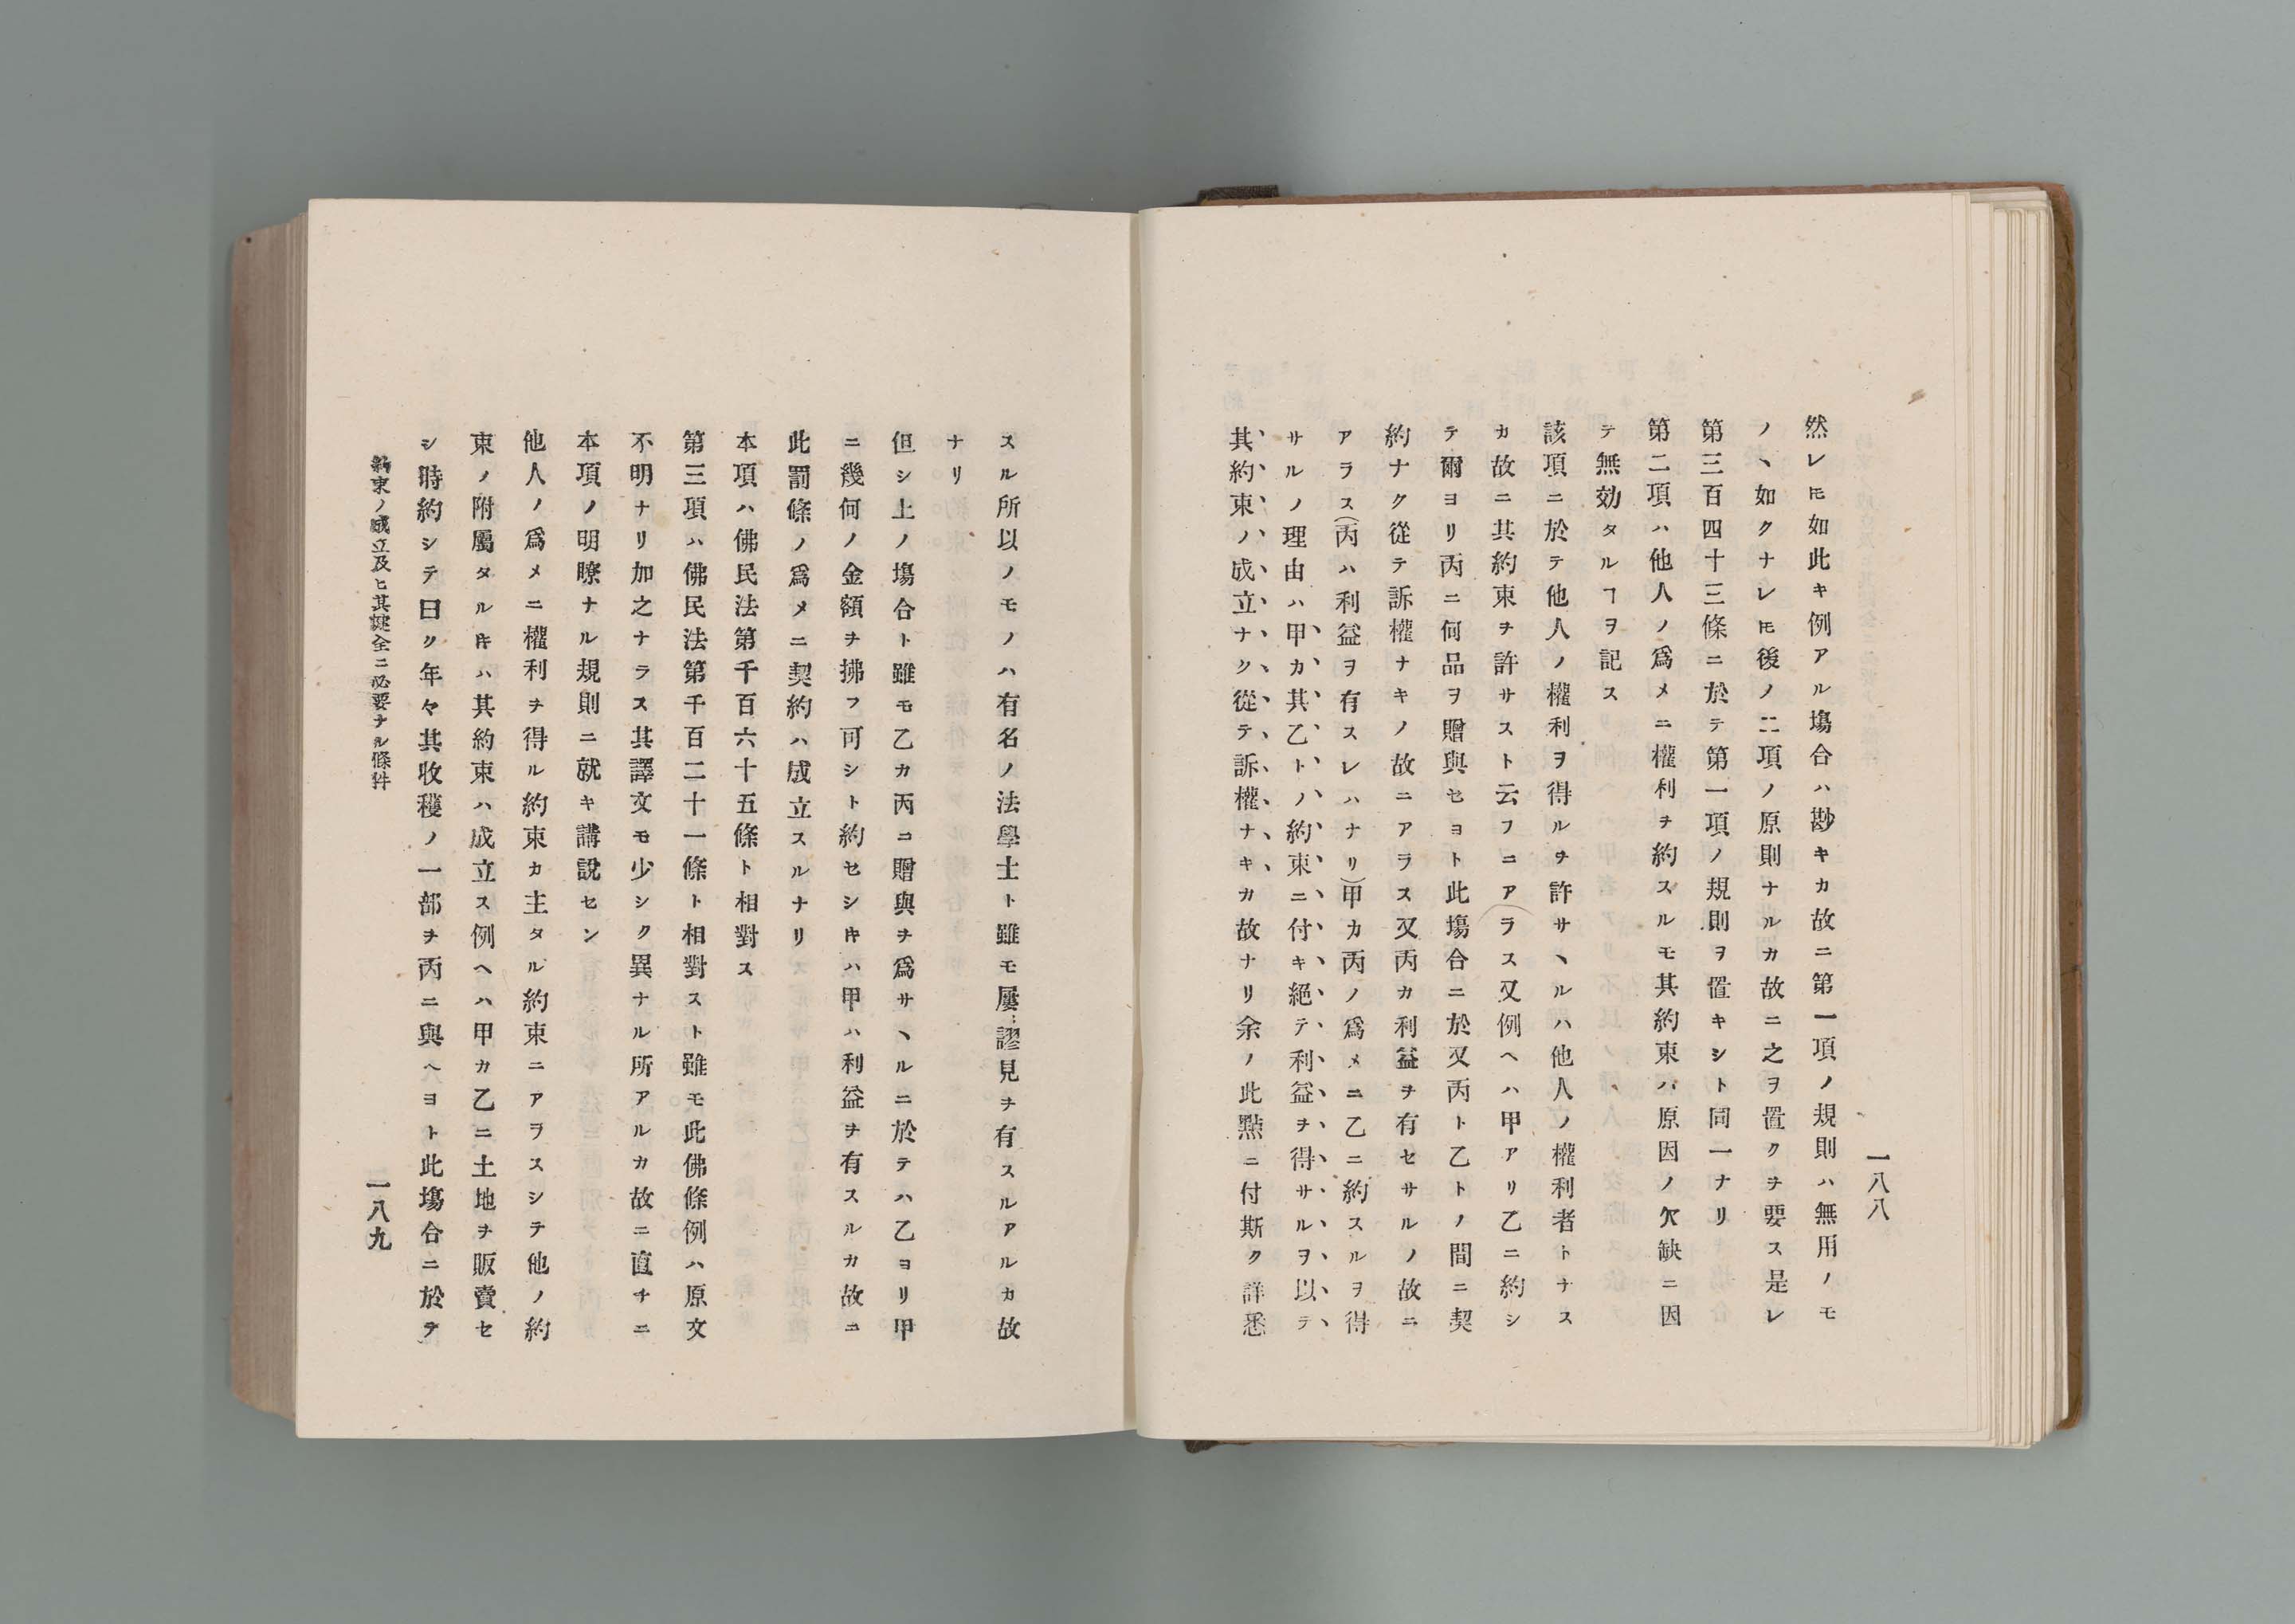 一八八
然レ𪜈如此キ例アル塲合ハ尠キカ故ニ第一項ノ規則ハ無用ノモ
ノヽ如クナレ𪜈後ノ二項ノ原則ナルカ故ニ之ヲ置クヲ要ス是レ
第三百四十三條ニ於テ第一項ノ規則ヲ置キシト同一ナリ
第二項ハ他人ノ爲メニ權利ヲ約スルモ其約束ハ原因ノ欠缺ニ因
テ無効タルヿヲ記ス
該項ニ於テ他人ノ權利ヲ得ルヲ許サヽルハ他人ノ權利者トナス
カ故ニ其約束ヲ許サスト云フニアラス又例ヘハ甲アリ乙ニ約シ
テ爾ヨリ丙ニ何品ヲ贈與セヨト此塲合ニ於又丙ト乙トノ間ニ契
約ナク從テ訴權ナキノ故ニアラス又丙カ利益ヲ有セサルノ故ニ
アラス(丙ハ利益ヲ有スレハナリ)甲カ丙ノ爲メニ乙ニ約スルヲ得
サルノ理由ハ甲カ其乙トノ約束ニ付キ絕テ利益ヲ得サルヲ以テ
其約束ノ成立ナク從テ訴權ナキカ故ナリ余ノ此㸃ニ付斯ク詳悉
スル所以ノモノハ有名ノ法學士ト雖モ屢謬見ヲ有スルアルカ故
ナリ
但シ上ノ塲合ト雖モ乙カ丙ニ贈與ヲ爲サヽルニ於テハ乙ヨリ甲
ニ幾何ノ金額ヲ拂フ可シト約セシ𪜈ハ甲ハ利益ヲ有スルカ故ニ
此罰條ノ爲メニ契約ハ成立スルナリ
本項ハ佛民法第千百六十五條ト相對ス
第三項ハ佛民法第千百二十一條ト相對スト雖モ此佛條例ハ原文
不明ナリ加之ナラス其譯文モ少シク異ナル所アルカ故ニ直チニ
本項ノ明瞭ナル規則ニ就キ講說セン
他人ノ爲メニ權利ヲ得ル約束カ主タル約束ニアラスシテ他ノ約
束ノ附屬タル𪜈ハ其約束ハ成立ス例ヘハ甲カ乙ニ土地ヲ販賣セ
シ時約シテ曰ク年々其收穫ノ一部ヲ丙ニ與ヘヨト此塲合ニ於テ
約束ノ成立及ヒ其健全ニ必要ナル條件
一八九